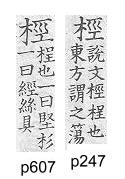 桱
說文桱桯也
東方謂之簜
桱
桯也一曰堅杉
一曰經絲具
p607 p247